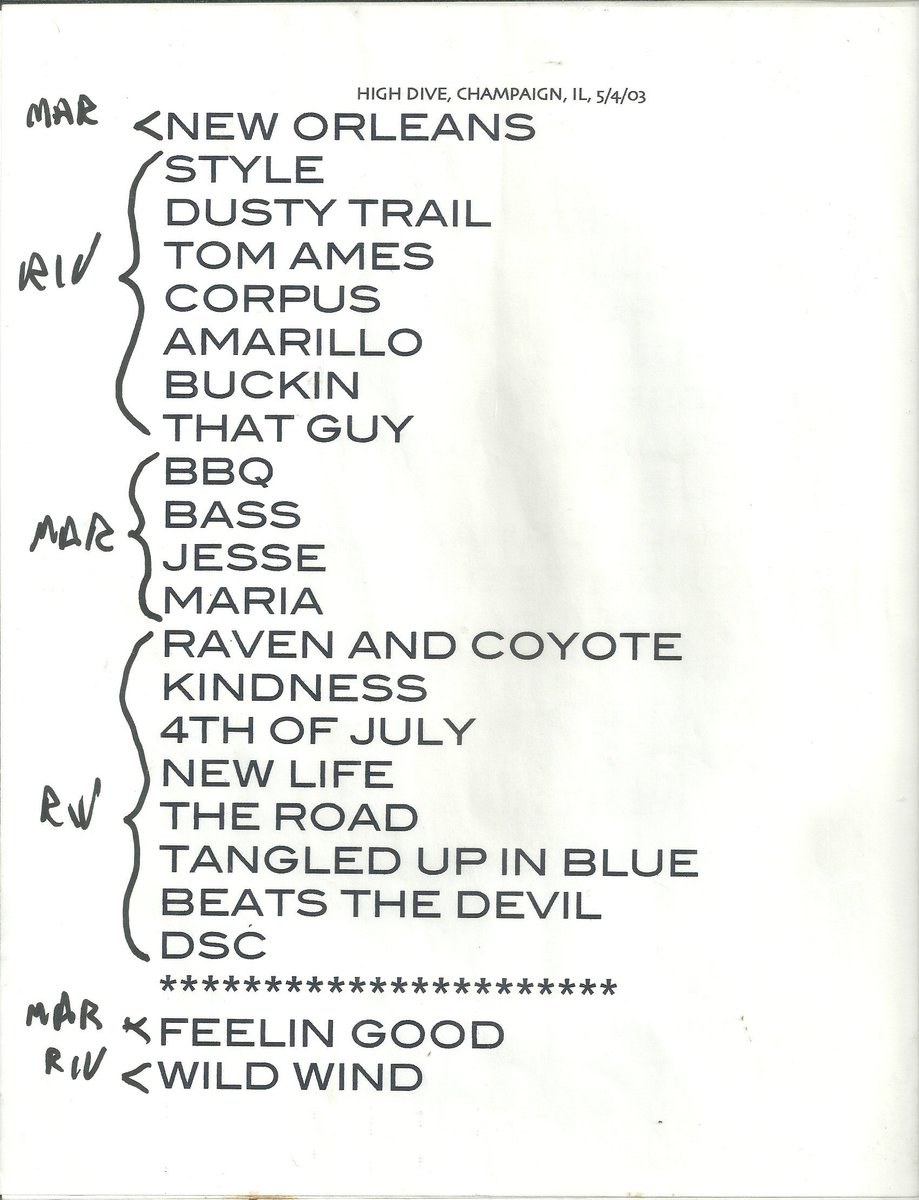 HIGH DIVE, CHAMPAIGN, IL, 5/4/03
MAR <NEW ORLEANS
STYLE
DUSTY TRAIL
RIV TOM AMES
CORPUS
AMARILLO
BUCKIN
THAT GUY
BBQ
BASS
MAR JESSE
MARIA
RAVEN AND COYOTE
KINDNESS
4TH OF JULY
NEW LIFE
RIV THE ROAD
TANGLED UP IN BLUE
BEATS THE DEVIL
DSC
**********************
MAR FEELIN GOOD
RIV <WILD WIND